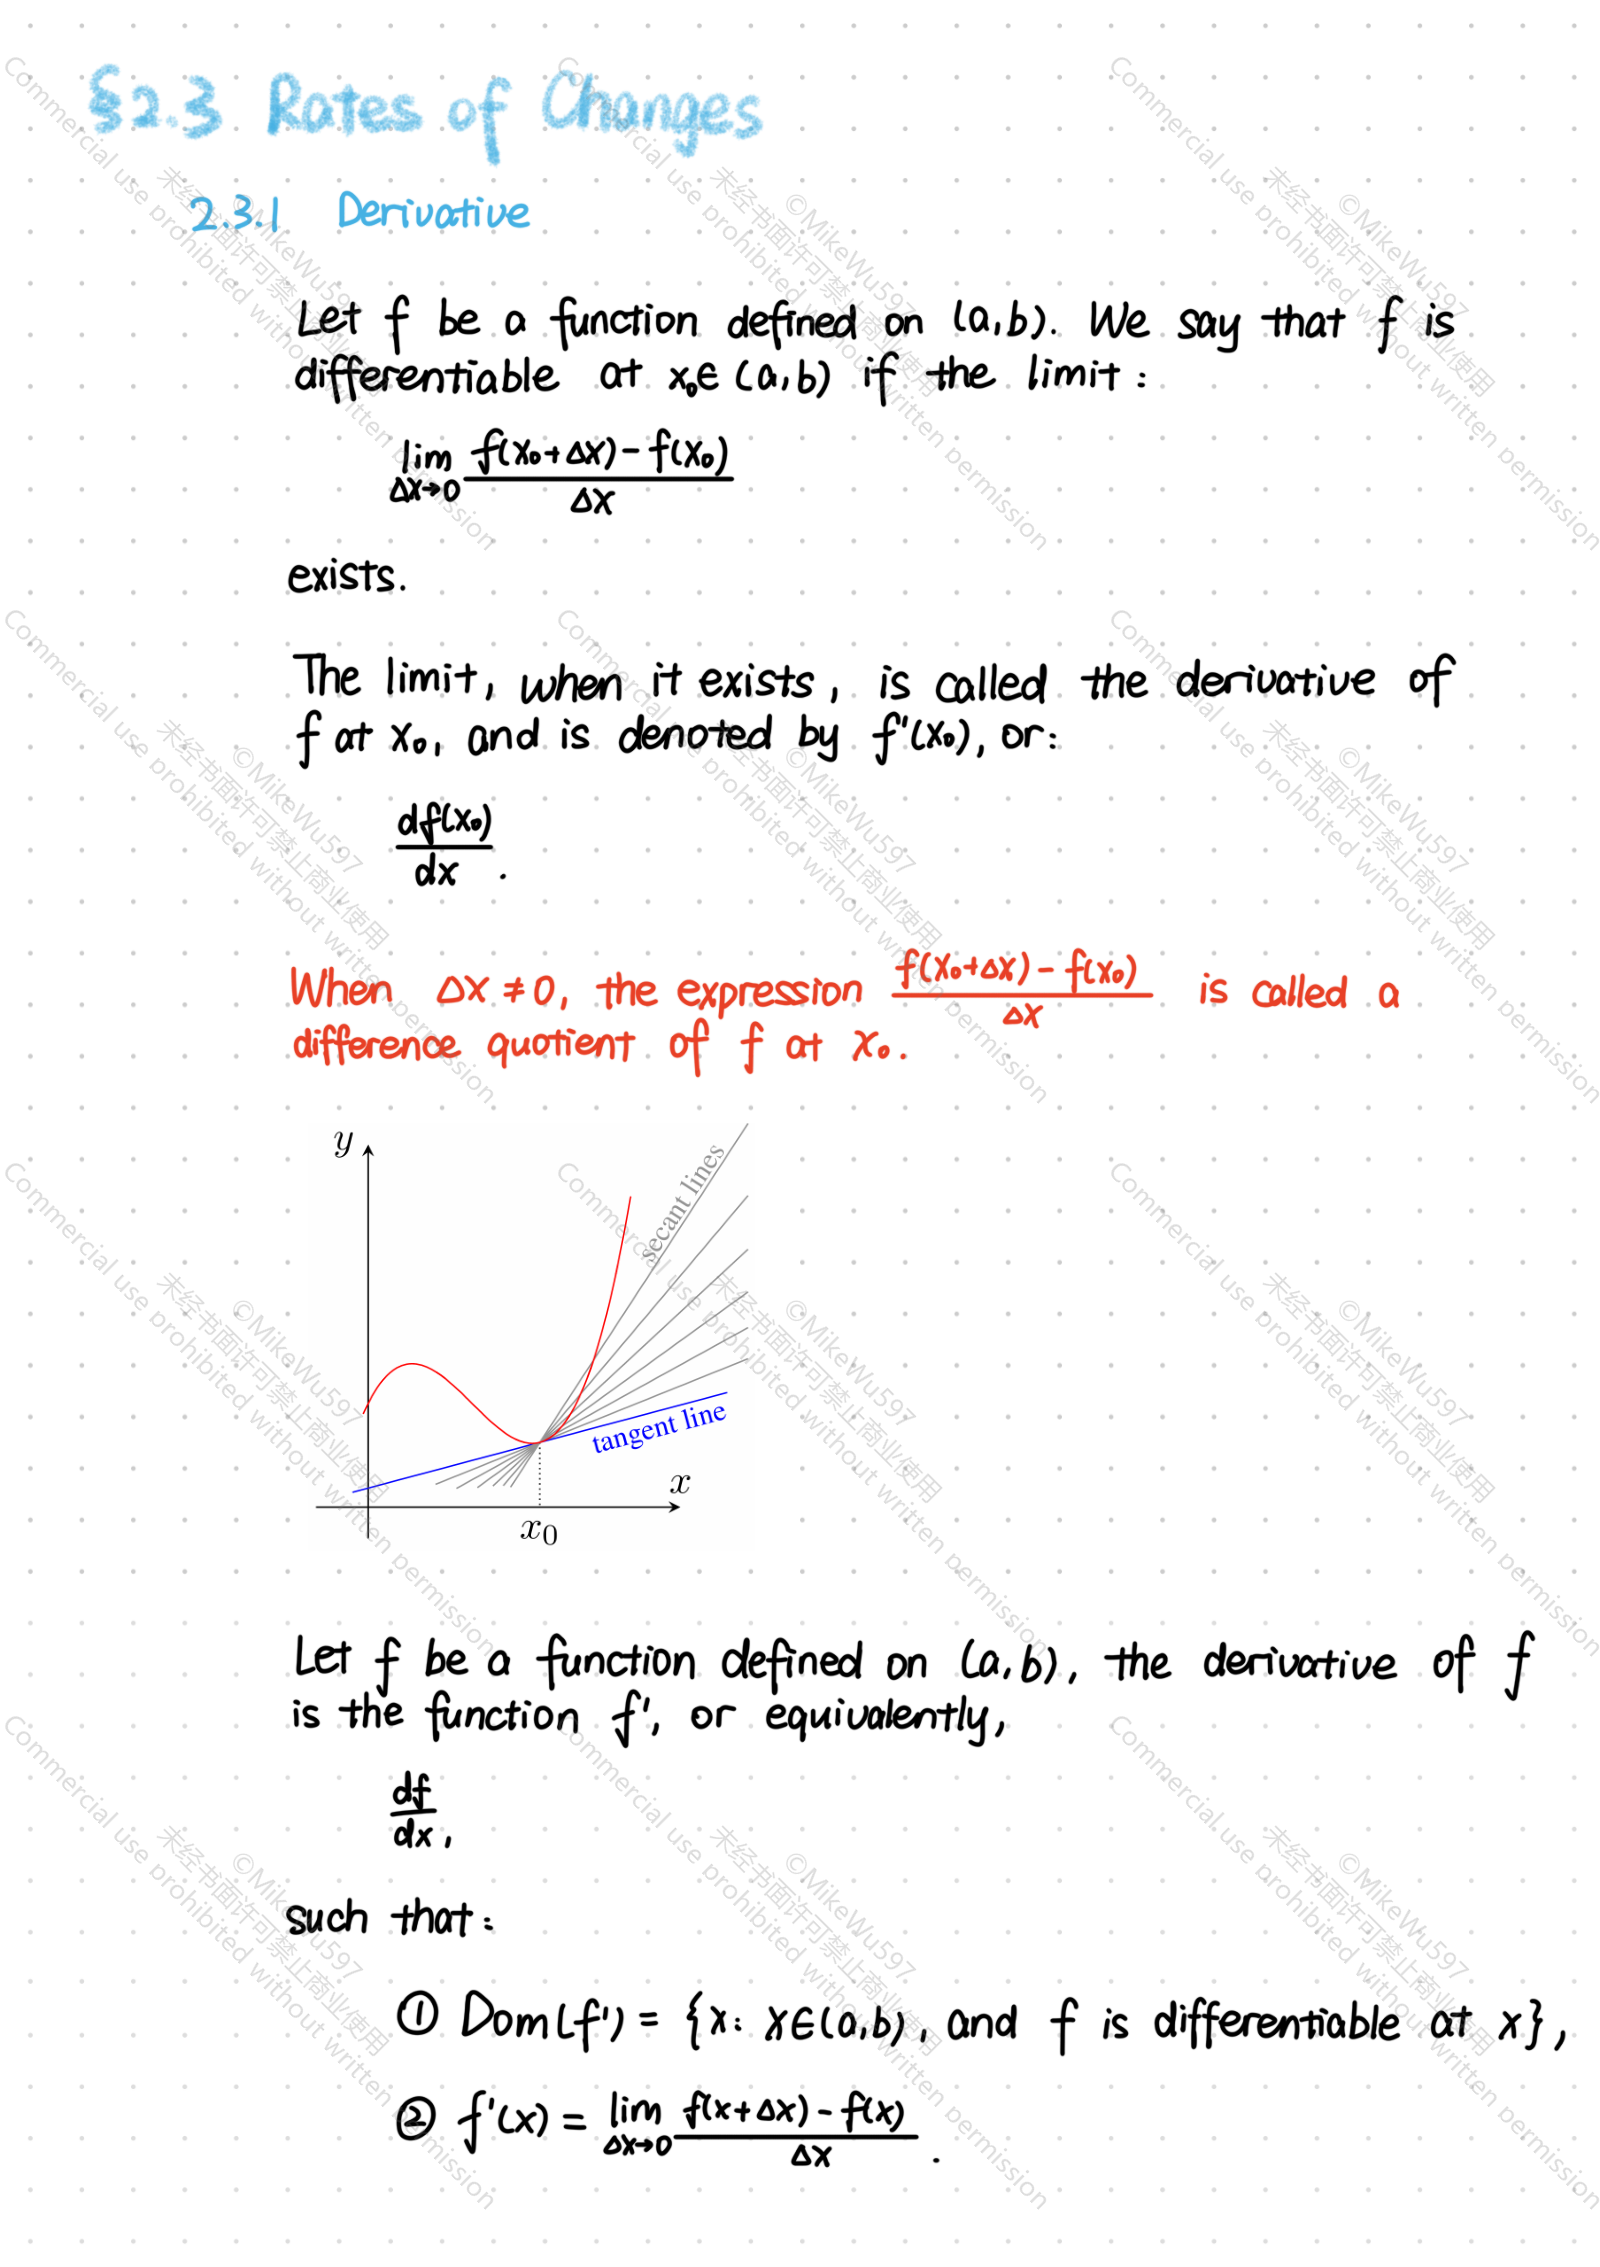 §2.3 Rates of Changes
2.3.1 Derivative
Let f be a function defined on (a,b). We say that f is
differentiable at x₀∈(a,b) if the limit:
lim_{Δx→0} (f(x₀+Δx)-f(x₀))/Δx
exists.
The limit, when it exists, is called the derivative of
f at x₀, and is denoted by f'(x₀), or:
df(x₀)/dx .
When Δx≠0, the expression (f(x₀+Δx)-f(x₀))/Δx is called a
difference quotient of f at x₀.
y
secant lines
tangent line
x
x₀
Let f be a function defined on (a,b), the derivative of f
is the function f', or equivalently,
df/dx,
such that:
① Dom(f') = {x: x∈(a,b), and f is differentiable at x},
② f'(x) = lim_{Δx→0} (f(x+Δx)-f(x))/Δx .
©MikeWu597
未经书面许可禁止商业使用
Commercial use prohibited without written permission